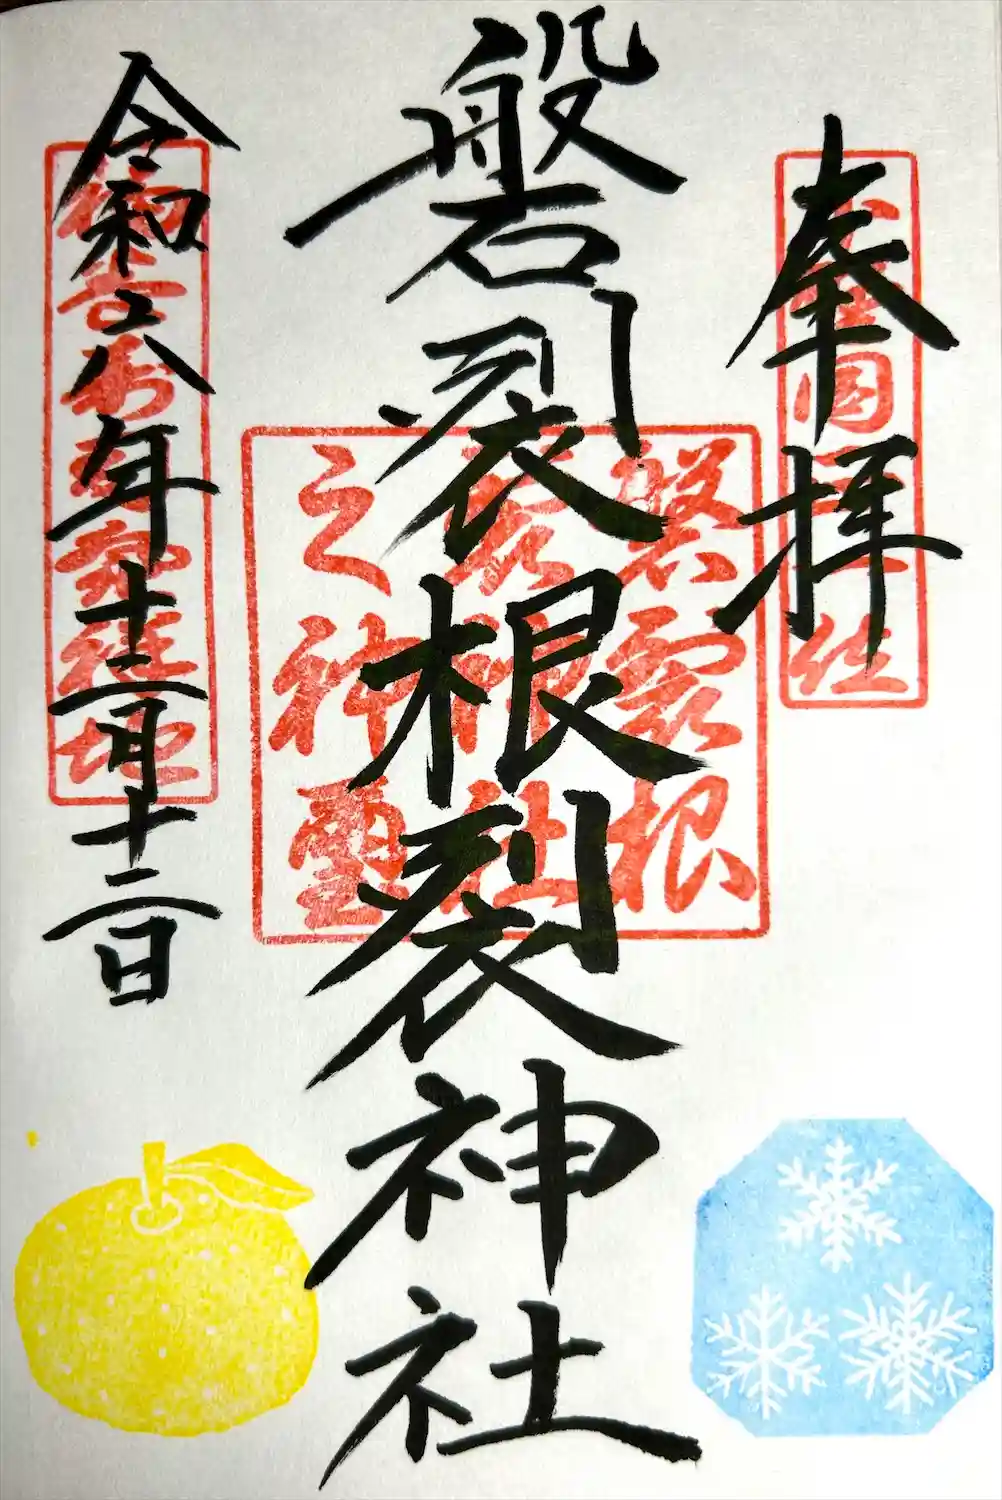 奉拝
磐裂根裂神社
令和六年十二月十二日
磐裂根
裂神社
之神璽